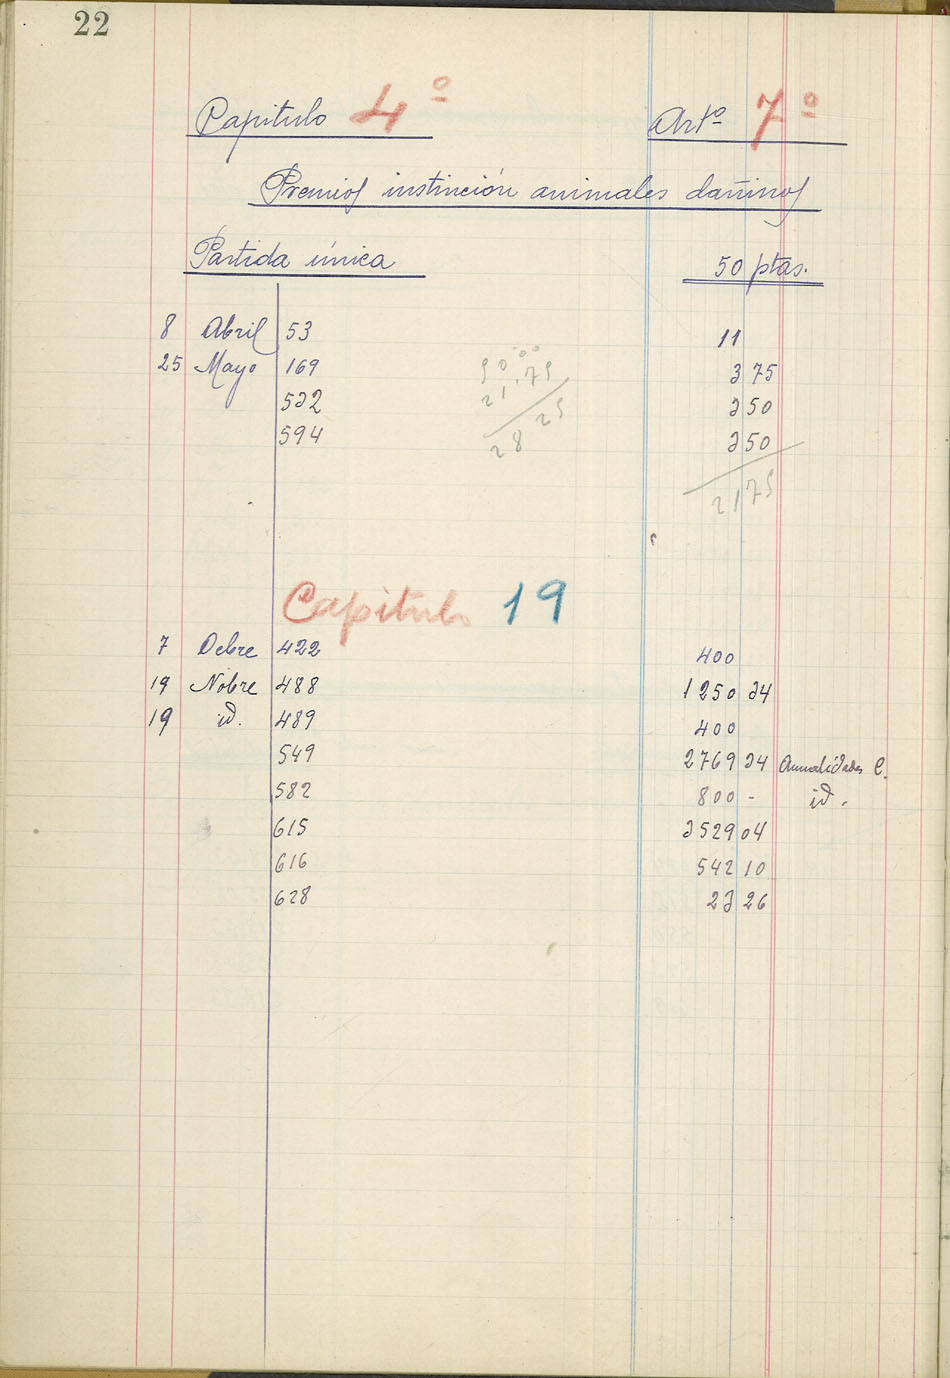 22
Capitulo 4º Artº 7º
Premios instinción animales dañinos
Partida única 50 ptas.
8 Abril 53 11
25 Mayo 169 3 75
532 3 50
594 3 50
21 75
50.00
21.75
28 25
Capitulo 19
7 Dcbre 422 400
19 Nobre 488 1250 34
19 id. 489 400
549 2769 34 Anualidades C.
582 800 - id.
615 3529 04
616 542 10
628 23 26